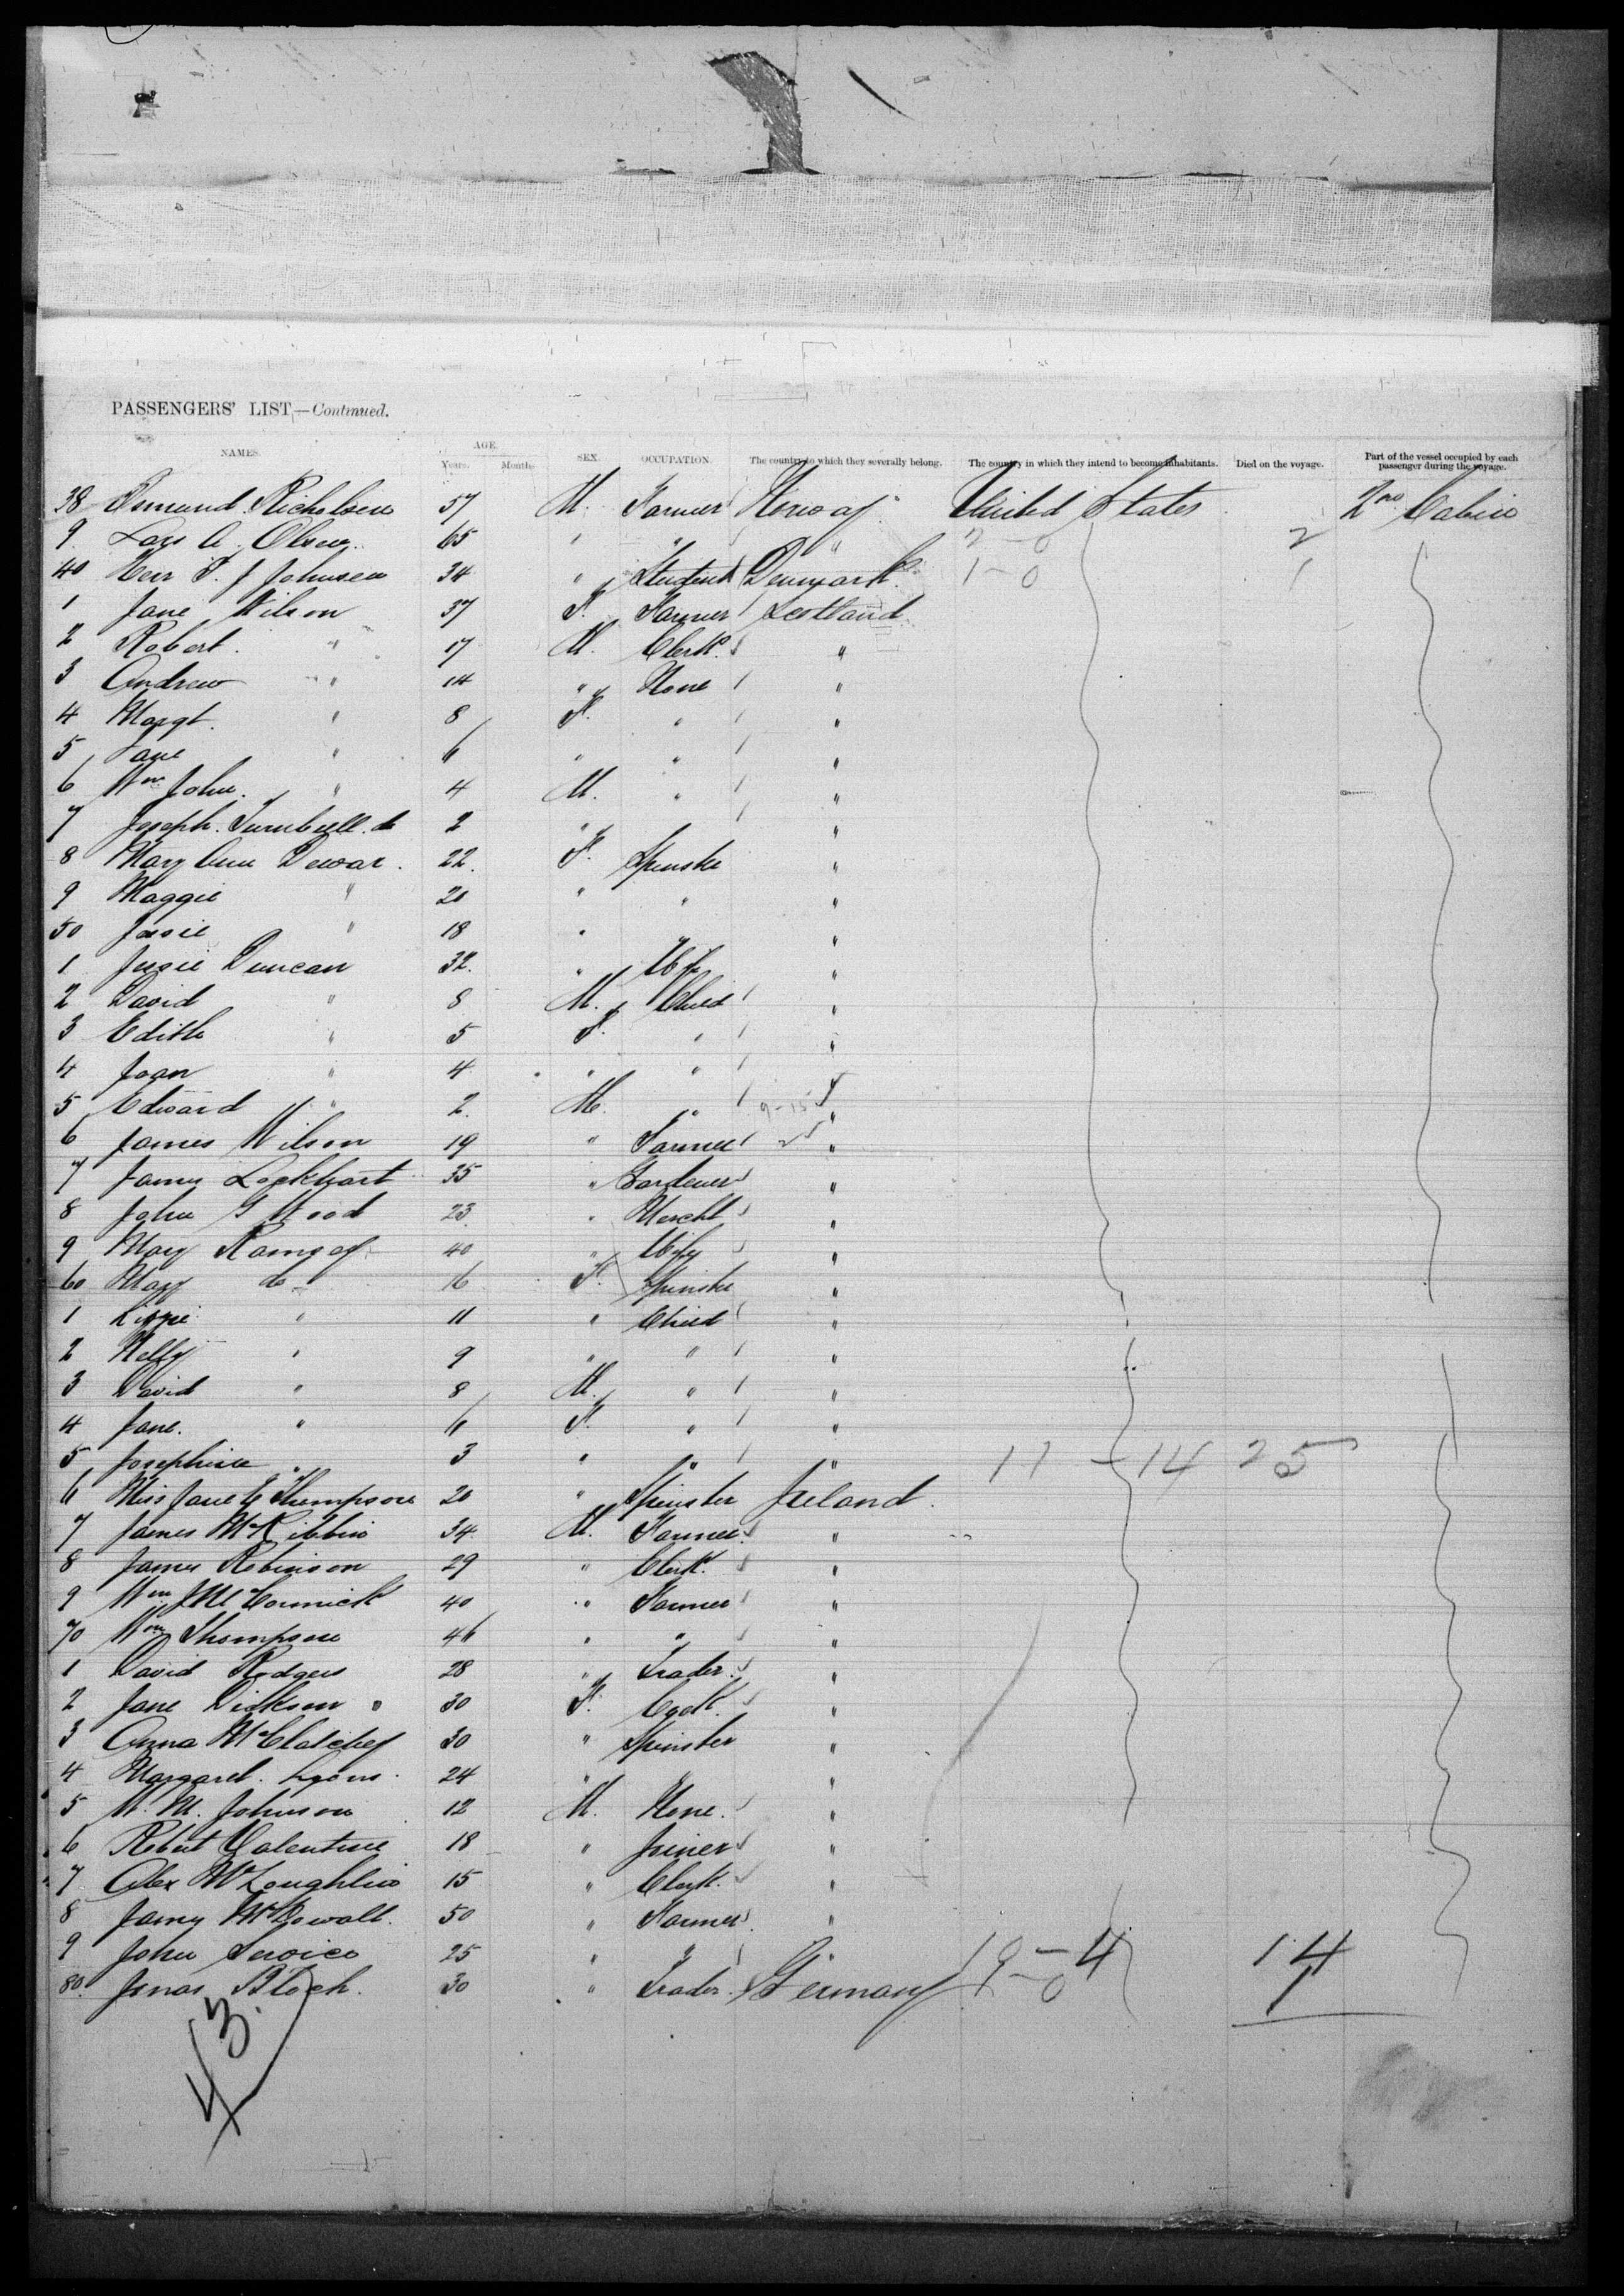 PASSENGERS' LIST,—Continued.
NAMES. AGE. Years. Months. SEX. OCCUPATION. The country to which they severally belong. The country in which they intend to become inhabitants. Died on the voyage. Part of the vessel occupied by each passenger during the voyage.
38 Osmund Nicholsen 57 M. Farmer Norway United States 2nd Cabin
9 Lars A. Olsen 65 " " " 2-0 2
40 Herr J. Johnsen 34 " Student Denmark 1-0 1
1 Jane Wilson 37 F. Farmer Scotland
2 Robert " 17 M. Clerk "
3 Andrew " 14 " None "
4 Margt. " 8 F. " "
5 Jane " 6 " " "
6 Wm John " 4 M. " "
7 Joseph Turnbull do 2 " "
8 Mary Ann Dewar 22 F. Spinster "
9 Maggie " 20 " " "
50 " 18 " " "
1 Jessie Duncan 32 " Wife "
2 David " 8 M. Child "
3 Edith " 5 F. " "
4 Joan " 4 " " "
5 Edward " 2 M. " 9-15 "
6 James Wilson 19 " Farmer 25 "
7 James Lockhart 35 " Gardener "
8 John G Wood 23 " Mercht "
9 Mary Ramsay 40 " Wife "
60 Mary do 16 F. Spinster "
1 Lizzie " 11 " Child "
2 Nelly " 9 " " "
3 David " 8 M. " "
4 Jane. " 6 F. " "
5 Josephine " 3 " " " 11-14 25
6 Miss Jane Thompson 20 " Spinster Ireland
7 James McKibbin 34 M. Farmer "
8 James Robinson 29 " Clerk "
9 Wm J McCormick 40 " Farmer "
70 Wm Thompson 46 " " "
1 David Rodgers 28 " Trader "
2 Jane Dickson 30 F. Cook "
3 Anna McClatchey 30 " Spinster "
4 Margaret Lyons 24 " " "
5 W. M. Johnson 12 M. None "
6 Robert Valentine 18 " Joiner "
7 Alex McLoughlin 15 " Clerk "
8 James McDowall 50 " Farmer "
9 John Service 25 " " 10-4 14
80 Jonas Bloch 30 " Trader Germany 1-0 1
43